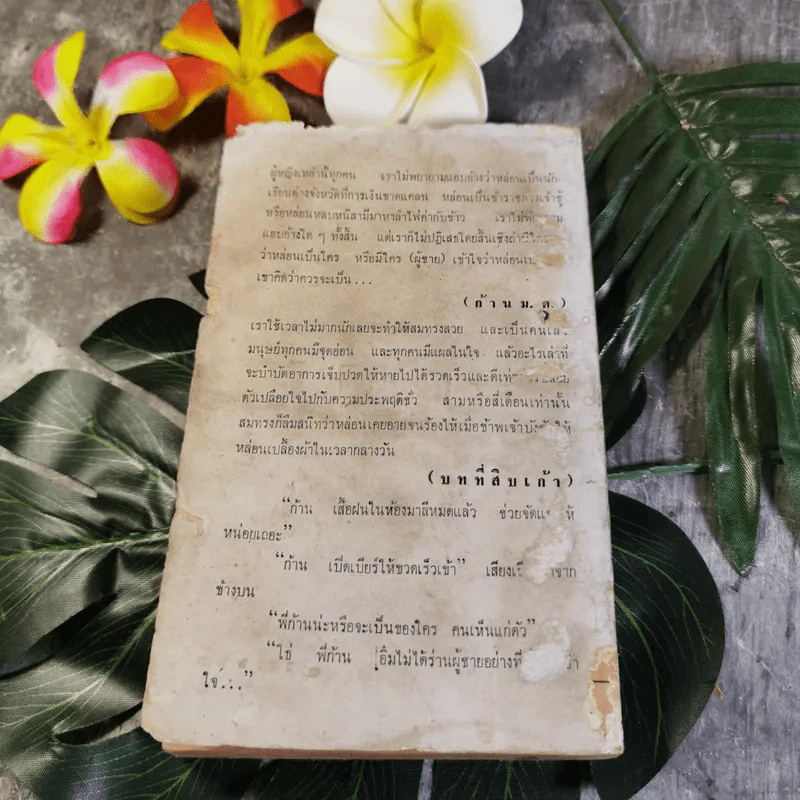 ผู้หญิงเหล่านี้ทุกคน เราไม่พยายามแอบอ้างว่าหล่อนเป็นนัก-
เรียนต่างจังหวัดที่การเงินขาดแคลน หล่อนเป็นข้าราชการเจ้าชู้
หรือหล่อนหลบหนีสามีมาหาลำไพ่ค่ากับข้าว เราไม่
แอบอ้างใด ๆ ทั้งสิ้น แต่เราก็ไม่ปฏิเสธโดยสิ้นเชิงถ้ามีใคร
ว่าหล่อนเป็นใคร หรือมีใคร (ผู้ชาย) เข้าใจว่าหล่อน
เขาคิดว่าควรจะเป็น ...
(ก้าน ม. ดุ.)
เราใช้เวลาไม่มากนักเลยจะทำให้สมทรงสวย และเป็นคน
มนุษย์ทุกคนมีจุดอ่อน และทุกคนมีแผลในใจ แล้วอะไรเล่าที่
จะบำบัดอาการเจ็บปวดให้หายไปได้รวดเร็วและดี
ตัวเปลือยใจไปกับความประพฤติชั่ว สามหรือสี่เดือนเท่านั้น
สมทรงก็ลืมสนิทว่าหล่อนเคยอายจนร้องไห้เมื่อข้าพเจ้า ให้
หล่อนเปลื้องผ้าในเวลากลางวัน
(บทที่สิบเก้า)
“ก้าน เสื้อฝนในห้องมาลีหมดแล้ว ช่วยจัด ให้
หน่อยเถอะ”
“ก้าน เปิดเบียร์ให้ขวดเร็วเข้า” เสียง จาก
ข้างบน
“พี่ก้านน่ะหรือจะเป็นของใคร คนเห็นแก่ตัว”
“โธ่ พี่ก้าน อิ๋มไม่ได้ร่านผู้ชายอย่างที่ ว่า
ใจ...”